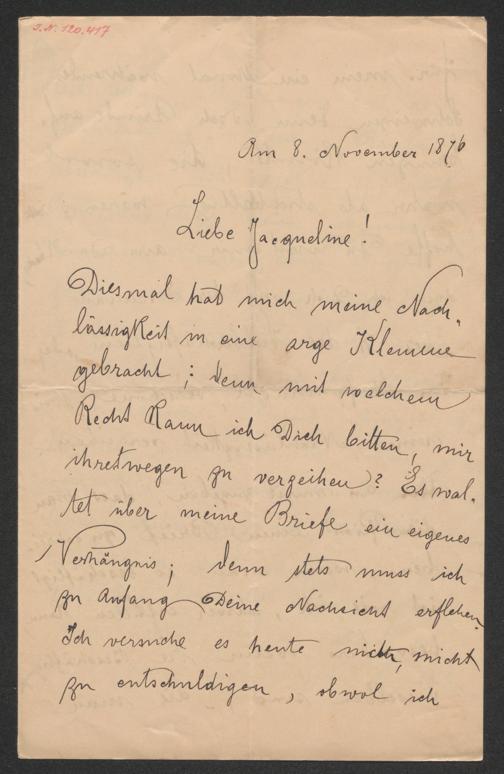 I.N. 120.417
Am 8. November 1876
Liebe Jacqueline!
Diesmal hat mich meine Nach-
lässigkeit in eine arge Klemme
gebracht; denn mit welchem
Recht kann ich Dich bitten, mir
ihretwegen zu verzeihen? Es wal-
tet über meine Briefe ein eigenes
Verhängnis; denn stets muss ich
zu Anfang Deine Nachsicht erflehen.
Ich versuche es heute nicht, mich
zu entschuldigen, obwol ich